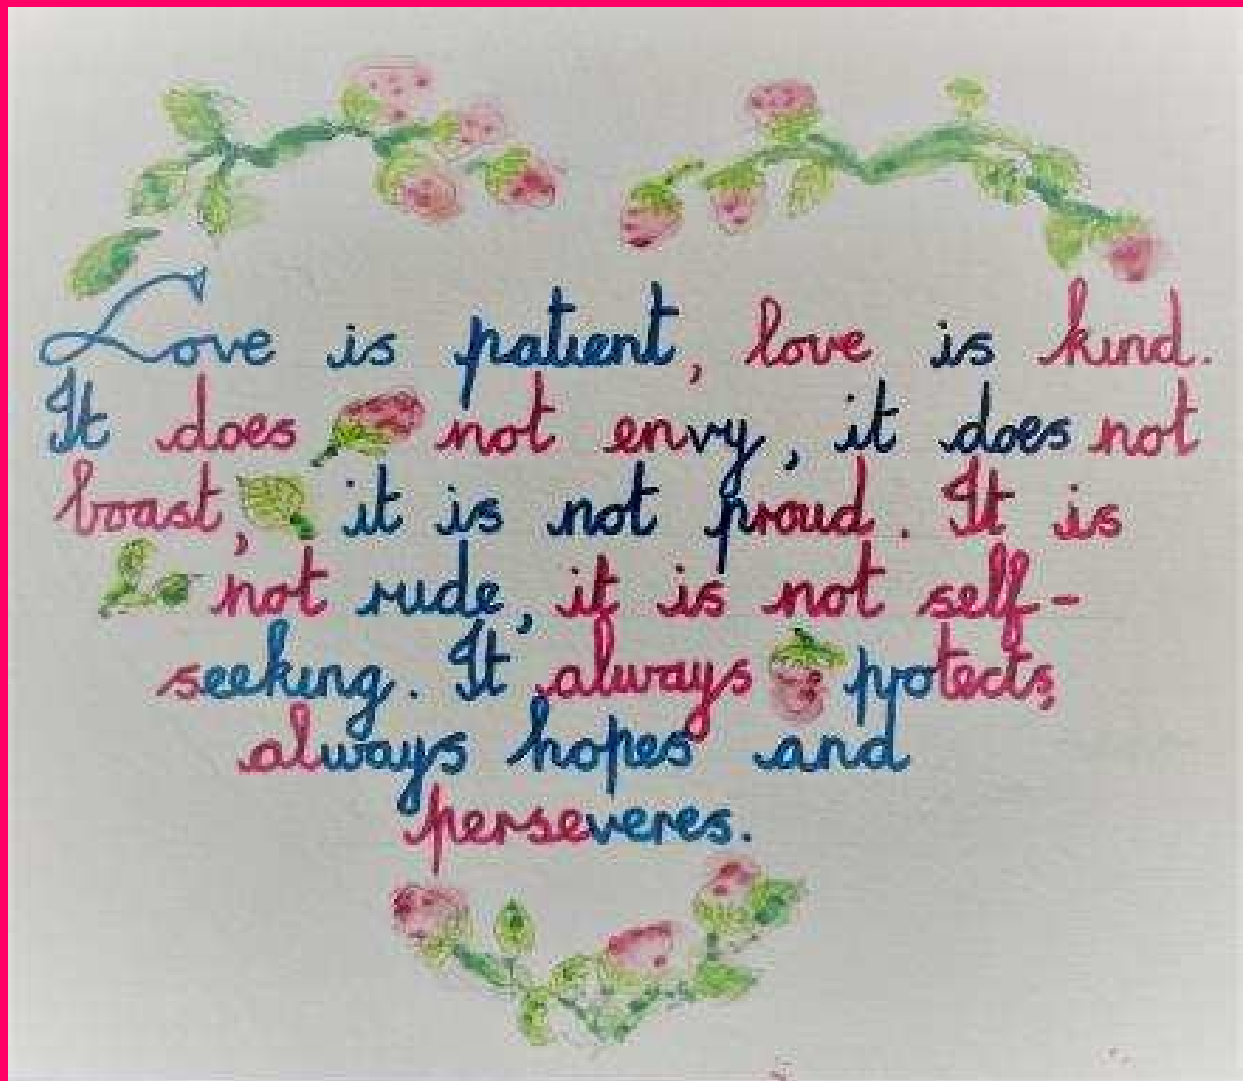 Love is patient, love is kind.
It does not envy, it does not
boast, it is not proud. It is
not rude, it is not self-
seeking. It always protects,
always hopes and
perseveres.